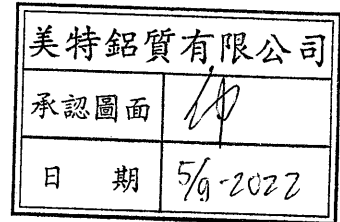 美特鋁質有限公司
承認圖面
日 期 5/9-2022